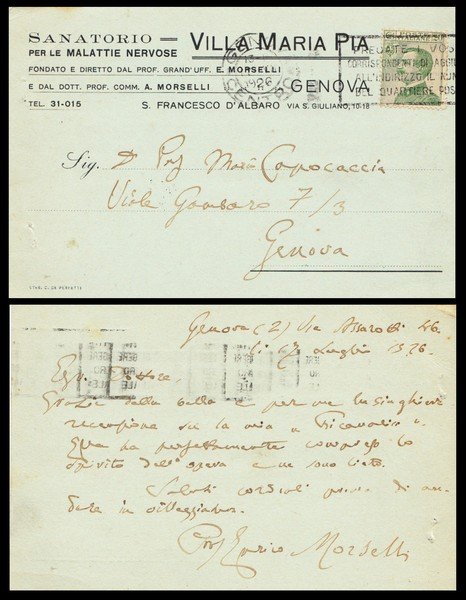 SANATORIO — VILLA MARIA PIA
PER LE MALATTIE NERVOSE
FONDATO E DIRETTO DAL PROF. GRAND'UFF. E. MORSELLI
E DAL DOTT. PROF. COMM. A. MORSELLI GENOVA
TEL. 31-015 S. FRANCESCO D'ALBARO VIA S. GIULIANO, 10-18
PREGATE I VOS
CORRISPONDENTI DI AGGIU
ALL'INDIRIZZO IL NUM
DEL QUARTIERE POS
Sig. Prof Mario Capocaccia
Viale 7/3
Genova
STAB. C. DE PERFETTI
Genova (2) Via Assarotti 46
Luglio 1926
Egr. Dottore,
Grazie della bella e per me lusinghiera
recensione su la mia
Ella ha perfettamente compreso lo
spirito dell'opera e ne sono lieto.
Saluti cordiali prima di an-
dare in villeggiatura.
Prof Enrico Morselli